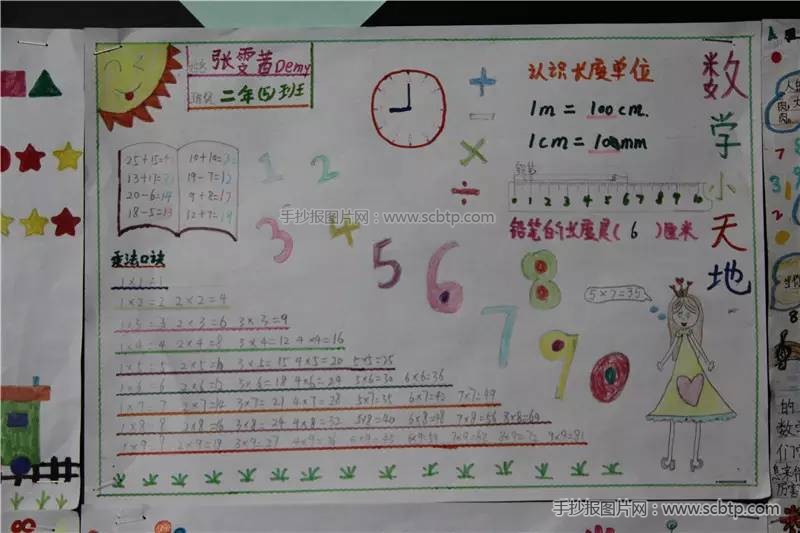 姓名 张雯茜Demy
班级 二年(5)班
数学小天地
认识长度单位
1m = 100cm.
1cm = 10mm
铅笔
0 1 2 3 4 5 6 7 8 9 10
铅笔的长度是( 6 )厘米
+
-
×
÷
20-6=14 9+8=17
18-5=13
19-7=12
1 2
3 4 5 6 7 8 9 0
5×7=35
手抄报图片网:www.scbtp.com
乘法口诀
1×1=1
1×2=2 2×2=4
1×3=3 2×3=6 3×3=9
1×4=4 2×4=8 3×4=12 4×4=16
1×5=5 3×5=15 4×5=20 5×5=25
1×6=6 3×6=18 4×6=24 5×6=30 6×6=36
1×7=7 2×7=14 3×7=21 4×7=28 5×7=35 6×7=42 7×7=49
1×8=8 2×8=16 3×8=24 4×8=32 5×8=40 6×8=48 7×8=56 8×8=64
1×9=9 3×9=27 4×9=36 5×9=45 7×9=63 8×9=72 9×9=81
手抄报图片网:www.scbtp.com